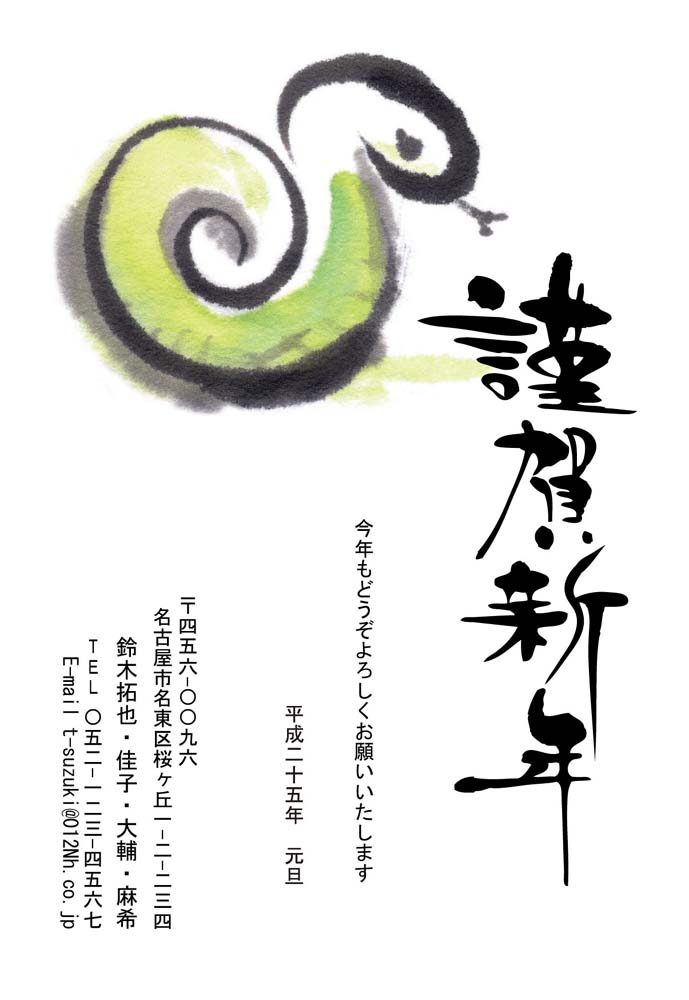 謹賀新年
今年もどうぞよろしくお願いいたします
平成二十五年　元旦
〒四五六-〇〇九六
名古屋市名東区桜ヶ丘一-二-二三四
鈴木拓也・佳子・大輔・麻希
TEL 〇五二-一二三-四五六七
E-mail t-suzuki@012Nh.co.jp